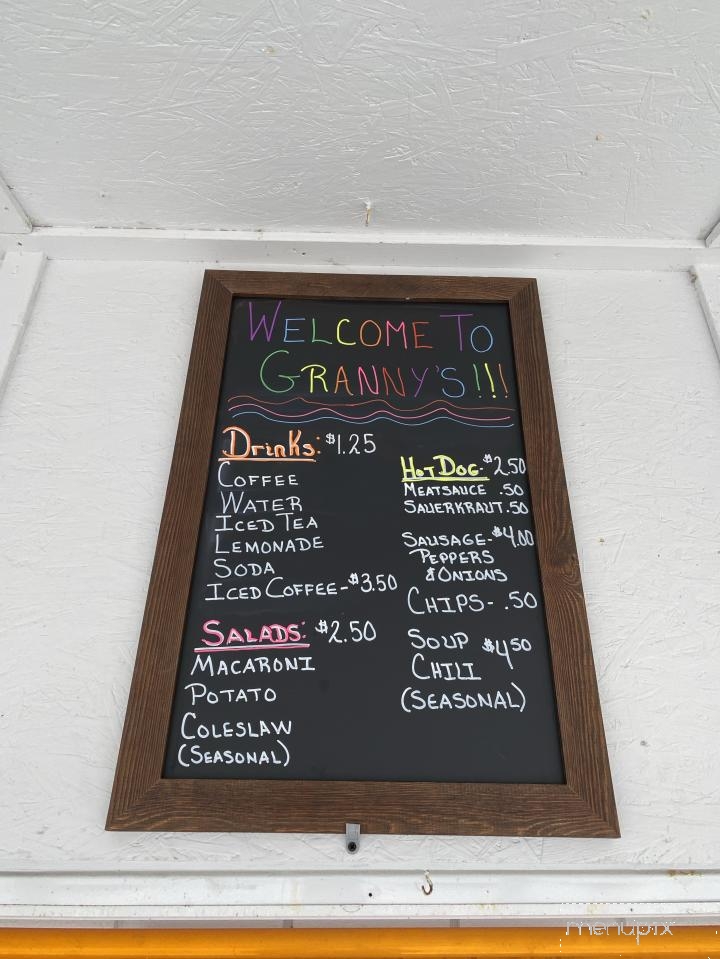 WELCOME TO
GRANNY'S!!!
Drinks: $1.25
COFFEE
WATER
ICED TEA
LEMONADE
SODA
ICED COFFEE-$3.50
SALADS: $2.50
MACARONI
POTATO
COLESLAW
(SEASONAL)
HOT DOG- $2.50
MEATSAUCE .50
SAUERKRAUT .50
SAUSAGE-$4.00
PEPPERS
& ONIONS
CHIPS- .50
SOUP $4.50
CHILI
(SEASONAL)
menupix